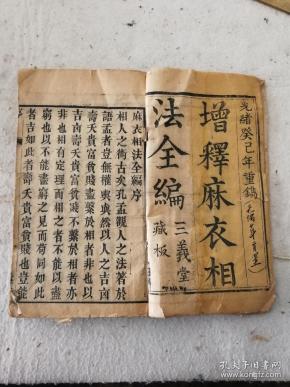 光緒癸巳年重鐫
增釋麻衣相
法全編
三義堂
藏板
麻衣相法全編序
相人之術古矣孔孟觀人之法著於
語孟者豈無權輿與然以人之吉凶
壽夭貴富貧賤盡繫於相者非也以
吉凶壽夭貴富貧賤不繫於相者亦
非也相有定理而相之者不能以盡
者以不能盡窮之見而苟同如此
者吉如此者壽夭貴富貧賤也豈能
孔夫子旧书网